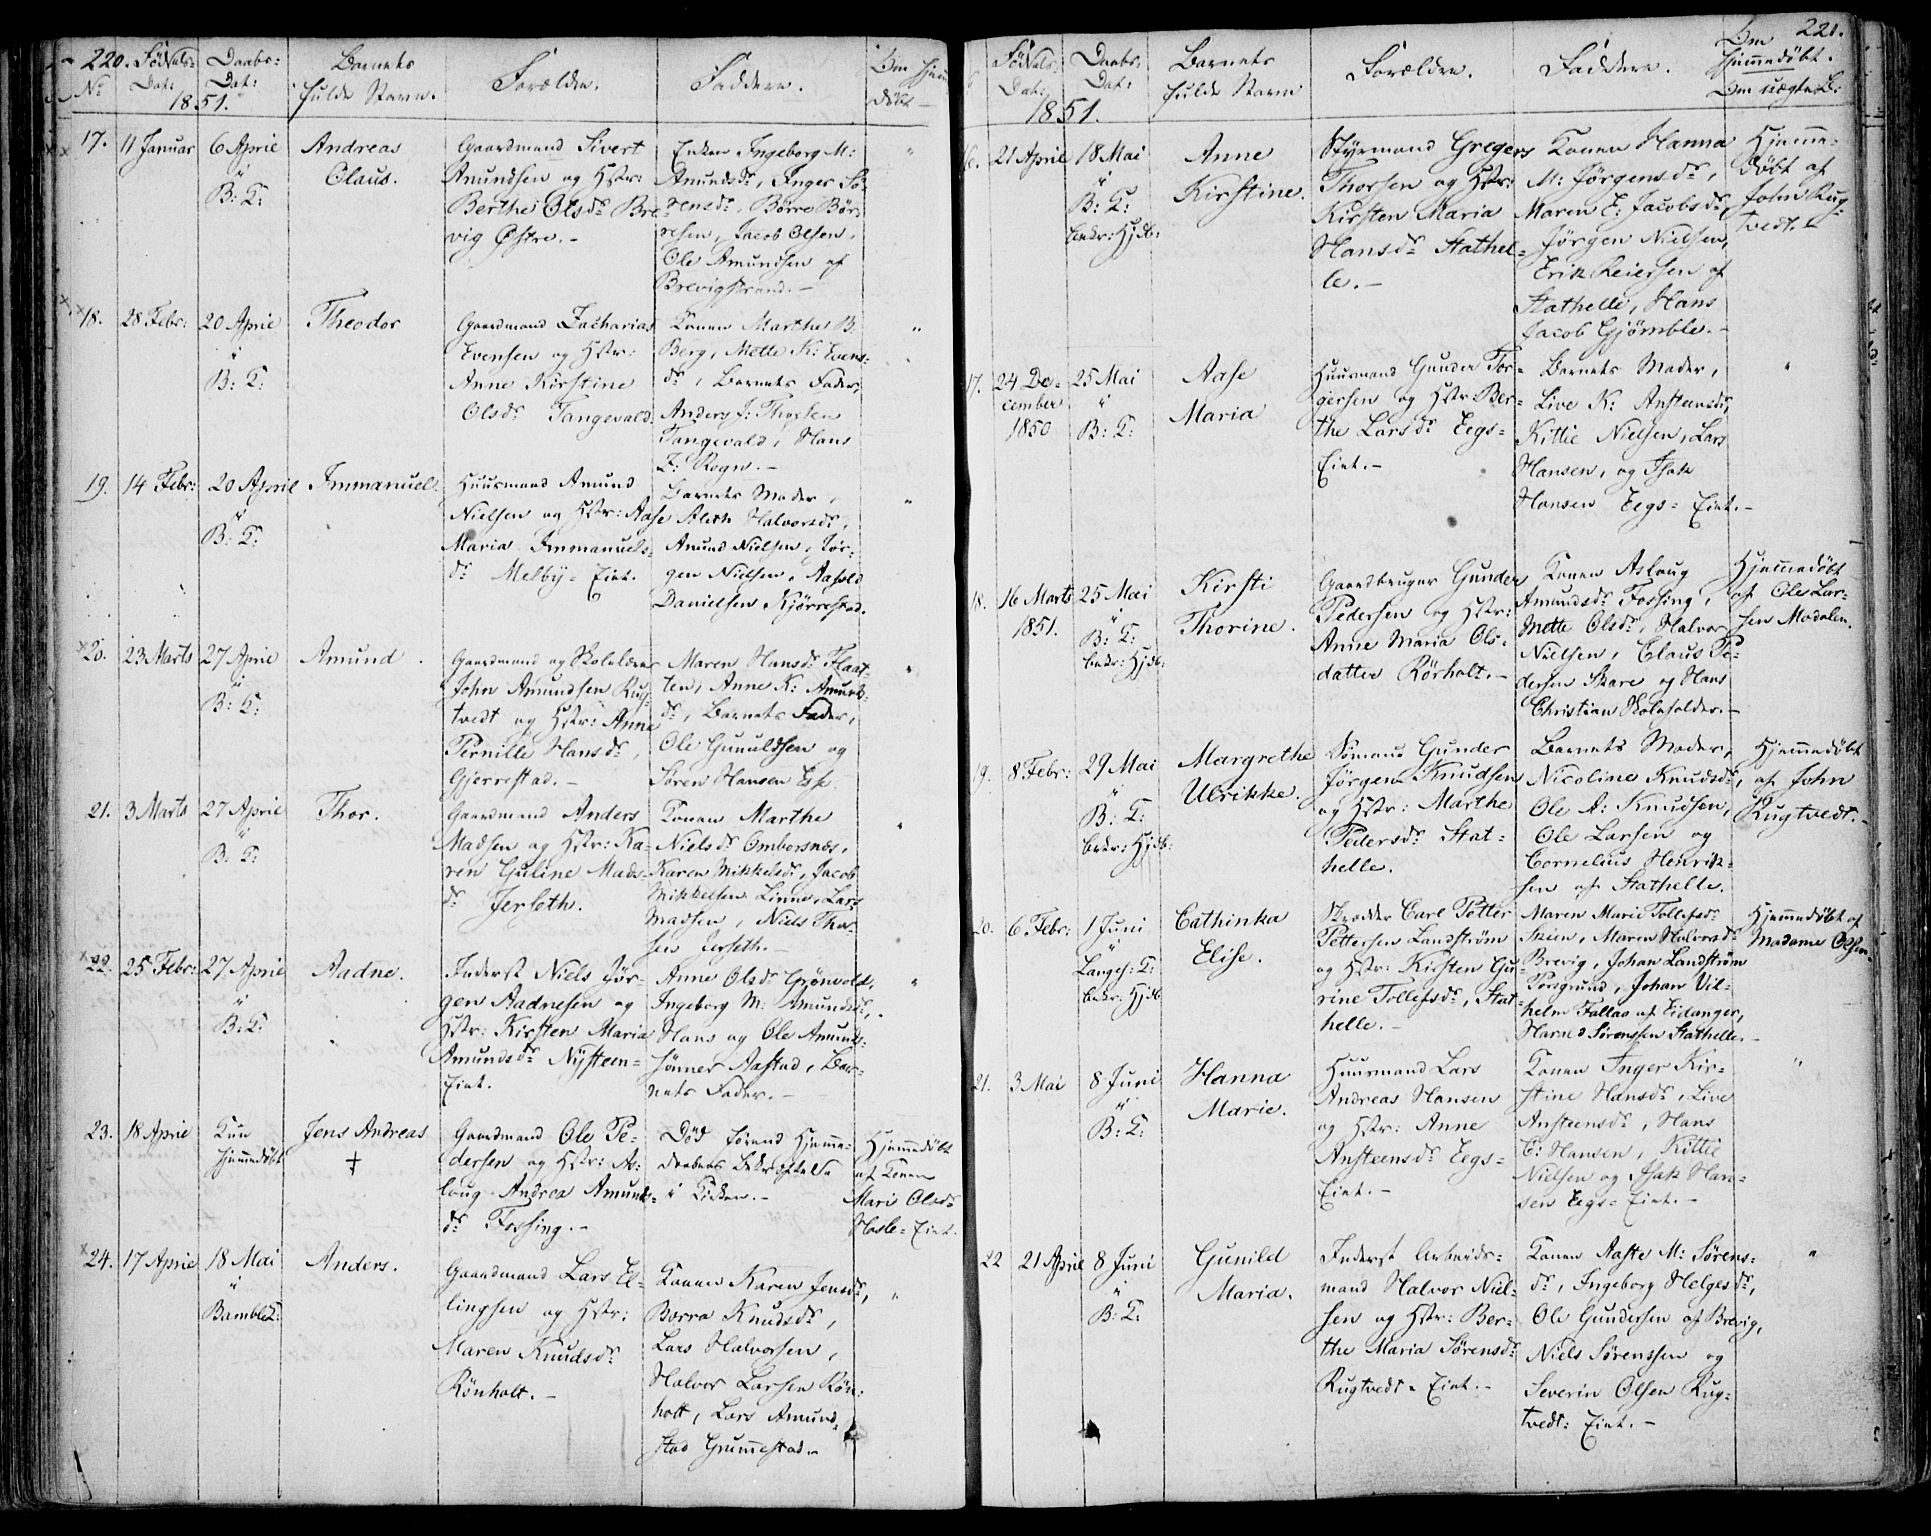 220.
Fødsels-
Dat:
Daabs-
Dat:
1851.
Barnets
fulde Navn.
Forældre.
Faddere.
Om hjemme
døbt
No
17. 11 Januar 6 April
"
B: K:
Andreas
Olaus.
Gaardmand Sivert
Amundsen og Hstr:
Berthe Olsdr Bre-
vig Østre.-
Enken Ingeborg M:
Amundsdr, Inger Sø-
rensdr, Børre Bør-
resen, Jacob Olsen,
Ole Amundsen af
Brevigstrand.-
"
18. 28 Febr: 20 April
"
B: K:
Theodor
Gaardmand Zacharias
Evensen og Hstr:
Anne Kirstine
Olsdr Tangevald.
Konen Marthe B.
Berg, Mette K: Evens-
dr, Barnets Fader,
Anders J: Thorsen
Tangevald, Hans
Rogn.-
"
19. 14 Febr: 20 April
"
B: K:
Immanuel.
Huusmand Amund
Nielsen og Hstr: Aase
Maria Immanuels-
dr Melby-Eiet.
Barnets Moder,
Aleth Halvorsdr,
Amund Nielsen, Jør-
gen Nielsen, Aasold
Danielsen Kjørrestad.
"
20. 23 Marts 27 April
"
B: K:
Amund
Gaardmand og Skolelærer
John Amundsen Rug-
tvedt og Hstr: Anne
Pernille Hansdr,
Gjerrestad.-
Maren Hansdr Flaat-
ten, Anne K: Amunds-
dr, Barnets Fader,
Ole Gunuldsen og
Søren Hansen
"
21. 3 Marts 27 April
"
B: K:
Thor.
Gaardmand Anders
Madsen og Hstr: Ka-
ren Guline Mads-
dr Jerseth.
Konen Marthe
Nielsdr Omborsnæs,
Karen Mikkelsdr, Jacob
Mikkelsen Linne, Lars
Madsen, Niels Thor-
sen Jerseth.-
"
22. 25 Febr: 27 April
"
B: K:
Aadne.
Inderst Niels Jør-
gen Aadnesen og
Hstr: Kirsten Maria
Amundsdr Nysteen-
Eiet.
Anne Olsdr Grønvold,
Ingeborg M: Amundsdr,
Hans og Ole Amunds-
sønner Aastad, Bar-
nets Fader.-
"
23. 18 April
Kun
hjemmedøbt
Jens Andreas
†
Gaardmand Ole Pe-
dersen og Hstr: As-
loug Andrea Amunds-
dr Fossing.-
Død førend Hjemme-
daabens Bekræftelse
i Kirken.-
Hjemmedøbt
af Konen
Mari Olsdr
Hasle-Eiet.
24. 17 April 18 Mai
"
BambleK:
Anders.
Gaardmand Lars El-
lingsen og Hstr:
Maren Knudsdr
Rønholt.-
Konen Karen Jensdr,
Borra Knudsdr,
Lars Halvorsen,
Halvor Larsen Røn-
holt, Lars Amund-
Grummestad.-
"
221.
Fødsels-
Dat:
Daabs-
Dat:
1851.
Barnets
fulde Navn
Forældre.
Faddere.
Om
hjemmedøbt.
Om uægte B:
16. 21 April 18 Mai
"
B: K:
bekr: Hjdb:
Anne
Kirstine.
Styrmand Gregers
Thorsen og Hstr:
Kirsten Maria
Hansdr Stathel-
le.-
Konen Hanna
M: Jörgensdr,
Maren E: Jacobsdr,
Jörgen Nielsen,
Erik Reiersen af
Stathelle, Hans
Jacob Gjømble.-
Hjemme-
døbt af
John Rug-
tvedt.-
17. 24 De-
cember
1850
25 Mai
"
B: K:
Aase
Maria
Huusmand Gunder Tor-
gersen og Hstr: Ber-
the Larsdr Eegs-
Eiet.-
Barnets Moder,
Live K: Ansteensdr,
Kittil Nielsen, Lars
Hansen, og Isak
Hansen Eegs-Eiet.-
"
18. 16 Marts
1851.
25 Mai
"
B: K:
bekr: Hjdb:
Kirsti
Thorine.
Gaardbruger Gunder
Pedersen og Hstr:
Anne Maria Ols-
datter Rörholt.-
Konen Asloug
Amundsdr Fossing,
Mette Olsdr, Halvor
Nielsen, Claus Pe-
dersen Skare og Hans
Christian Skoleholder.-
Hjemmedøbt
af Ole Lar-
sen Modalen.
19. 8 Febr: 29 Mai
"
B: K:
bekr: Hjdb:
Margrethe
Ulrikke.
Sömand Gunder
Jörgen Knudsen
og Hstr: Marthe
Pedersdr Stat-
helle.
Barnets Moder,
Nicoline Knudsdr,
Ole A: Knudsen,
Ole Larsen og
Cornelius Henrik-
sen af Stathelle.
Hjemmedøbt
af John
Rugtvedt.-
20. 6 Febr: 1 Juni
"
Langes: K:
bekr: Hjdb
Cathinka
Elise.
Skrædder Carl Petter
Pettersen Landström
og Hstr: Kirsten Gu-
rine Tollefsdr, Stat-
helle.-
Maren Marie Tollefsdr
Skien, Maren Halvorsdr
Brevig, Johan Landström
Porsgrund, Johan Vil-
helm Fallas af Eidanger,
Harald Sörenssen Stathelle.-
Hjemmedøbt af
Madame Olsen.
21. 3 Mai 8 Juni
"
B: K:
Hanna
Marie.
Huusmand Lars
Andreas Hansen
og Hstr: Anne
Ansteensdr Eegs-
Eiet.-
Konen Inger Kir-
stine Hansdr, Live
Ansteensdr, Hans
C: Hansen, Kittil
Nielsen og Isak Han-
sen Eegs-Eiet.-
"
22 21 April 8 Juni
"
B: K:
Gunild
Maria.
Inderst Arbeids-
mand Halvor Niel-
sen og Hstr: Ber-
the Maria Sörensdr
Rugtvedt-Eiet.-
Konen Aaste M: Sörens-
dr, Ingeborg Helgesdr,
Ole Gundersen af Brevig,
Niels Sörenssen og
Severin Olsen Rug-
tvedt: Eiet.-
"